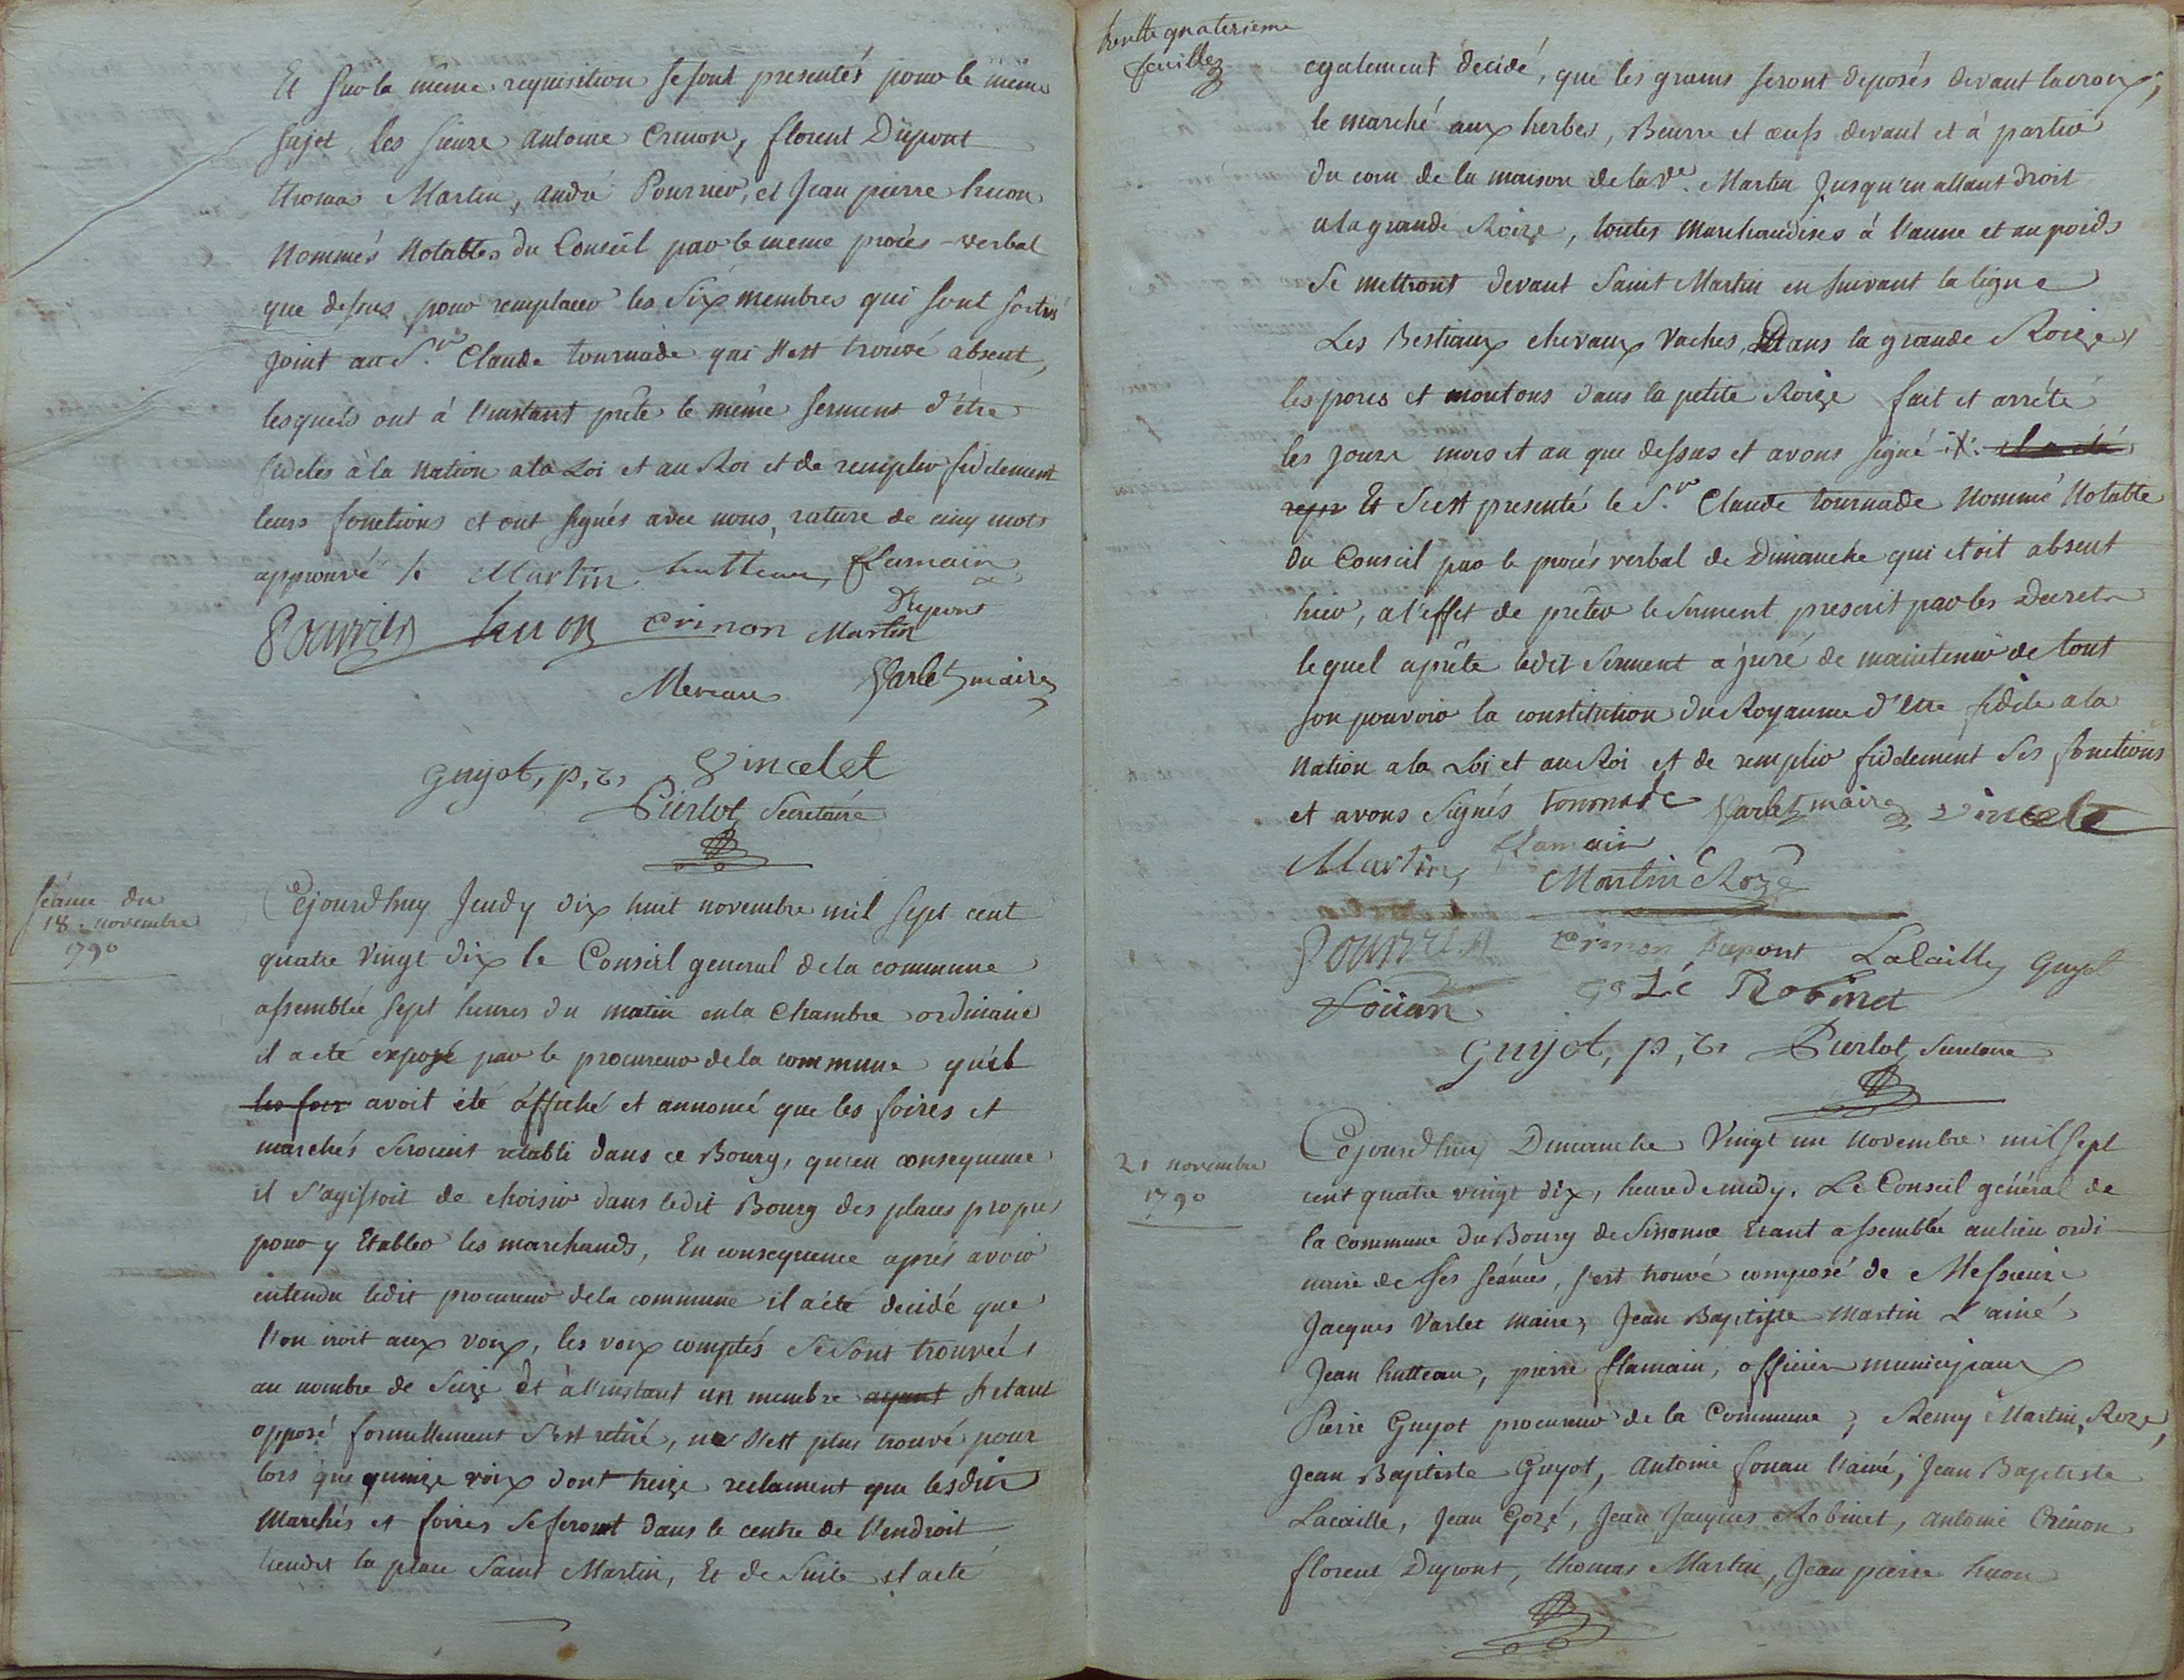 Et sur la même requisition se sont presentés pour le meme
sujet les sieurs antoine Crinon, florent Dupont
thomas Martin, andré Pourrier, et Jean pierre huon
nommés notables du Conseil par le meme procès-verbal
que dessus pour remplacer les Six membres qui sont sortis
joint au S.r Claude tournade qui s'est trouvé absent,
lesquels ont à l'instant prêté le même serment d'être
fideles à la nation a la Loi et au Roi et de remplir fidelement
leurs fonctions et ont signés avec nous, rature de cinq mots
approuvé /. Martin hutteau, flamain
Pourrier huon Crinon Martin Dupont
Mereau Varlet maire
guyot, p, r, Vincelet
Pierlot, Secretaire
séance du
18. novembre
1790
Cejourdhuy Jeudy dix huit novembre mil sept cent
quatre vingt dix le Conseil general de la commune
assemblée sept heures du matin en la chambre ordinaire
il a été exposé par le procureur de la commune qu'il
les foir avoit été affiché et annoncé que les foires et
marchés seroient rétabli dans ce Bourg, qu'en consequence
il s'agissoit de choisir dans ledit Bourg des places propres
pour y Etablir les marchands, En consequence après avoir
entendu ledit procureur de la commune il a été decidé que
l'on iroit aux voix, les voix comptés se sont trouvées
au nombre de Seize Et à l'instant un membre ayant s'etant
opposé formellement s'est retiré, ne s'est plus trouvé pour
lors que quinze voix dont treize reclament que lesdits
Marchés et foires se feront dans le centre de l'endroit
tiendit la place Saint Martin, Et de Suite il a eté
trentte quaterieme
feuillez
egalement decidé, que les grains seront deposés devant la croix,
le marché aux herbes, Beurre et œufs devant et à partir
du coin de la maison de la V.e Martin Jusqu'en allant droit
a la grande Roize, toutes Marchandises à l'aune et au poids
Se mettront devant Saint Martin en suivant la ligne
Les Bestiaux chevaux Vaches, Dans la grande Roize,
les porcs et moutons dans la petite Roize fait et arrêté
les jours mois et an que dessus et avons signé ·/. il a été
repr Et S'est presenté le S.r Claude tournade Nommé Notable
du Conseil par le procés verbal de Dimanche qui etoit absent
hier, a l'effet de prêter le serment prescrit par les Decrets
lequel a prêté ledit serment a juré de maintenir de tout
son pouvoir la constitution du Royaume d'Etre fidele a la
Nation a la Loi et au Roi et de remplir fidelement ses fonctions
et avons Signés tournade Varlet maire Vincelet
Martin, flamain
Martin Roze
Pourrier Crinon Dupont Lacaille Guyot
fouan gozé Robinet
guyot, p, r, Pierlot, Secretaire
21 novembre
1790
Cejourdhuy Dimanche Vingt un novembre mil sept
cent quatre vingt dix, heure de midy. Le Conseil général de
la commune du Bourg de Sissonne Etant assemblée au lieu ordi
naire de ses séances, s'est trouvé composé de Messieurs
Jacques Varlet Maire, Jean Baptiste Martin L'ainé,
Jean hutteau, pierre flamain, officiers municipaux
Pierre Guyot procureur de la Commune, Remy Martin Roze,
Jean Baptiste Guyot, Antoine fouan l'ainé, Jean Baptiste
Lacaille, Jean Gozé, Jean Jacques Robinet, antoine Crinon
florent Dupont, thomas Martin, Jean pierre huon